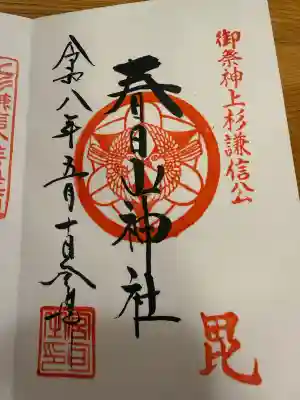 御祭神上杉謙信公
毘
春日山神社
令和八年五月十日